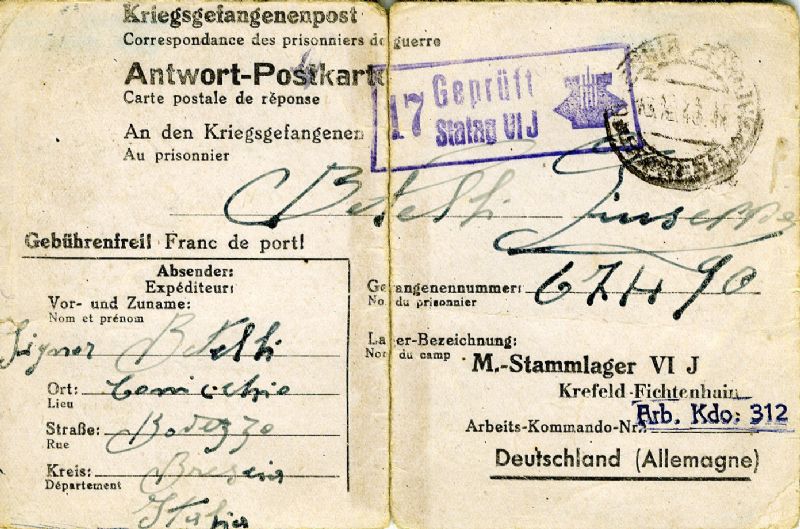 Kriegsgefangenenpost
Correspondance des prisonniers de guerre
Antwort-Postkarte
Carte postale de réponse
17 Geprüft
Stalag VI J
An den Kriegsgefangenen
Au prisonnier
Giuseppe
Gebührenfrei! Franc de port!
Absender:
Expéditeur:
Vor- und Zuname:
Nom et prénom
Signor
Ort:
Lieu
Straße:
Rue
Kreis: Brescia
Département
Italia
Gefangenennummer:
No. du prisonnier
Lager-Bezeichnung:
Nom du camp
M.-Stammlager VI J
Krefeld-Fichtenhain
Arbeits-Kommando-Nr.: Arb. Kdo: 312
Deutschland (Allemagne)